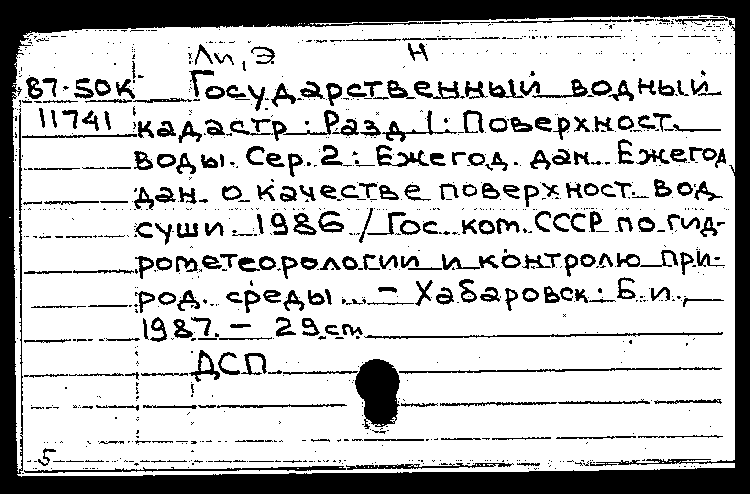 Ли, Э Н
87-50К Государственный водный
11741 кадастр: Разд. 1: Поверхност.
воды. Сер. 2: Ежегод. дан. Ежегод.
дан. о качестве поверхност. вод
суши. 1986 / Гос. ком. СССР по гид-
рометеорологии и контролю при-
род. среды... - Хабаровск: Б.и.,
1987. - 29 см.
ДСП
5